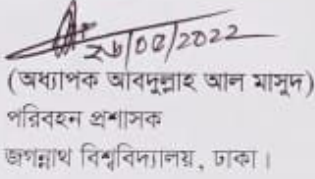 ২৬/০৫/2022
(অধ্যাপক আবদুল্লাহ আল মাসুদ)
পরিবহন প্রশাসক
জগন্নাথ বিশ্ববিদ্যালয়, ঢাকা।